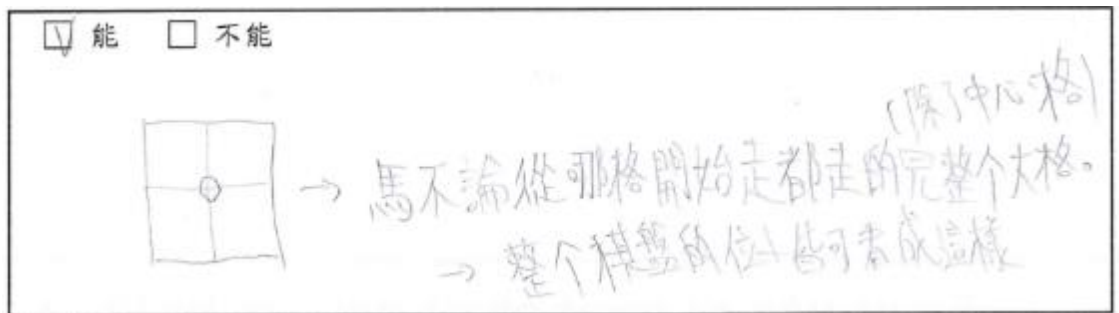 能 不能
(除了中心格)
馬不論從哪格開始走都走的完整个大格。
→ 整个棋盤的位 皆可看成這樣